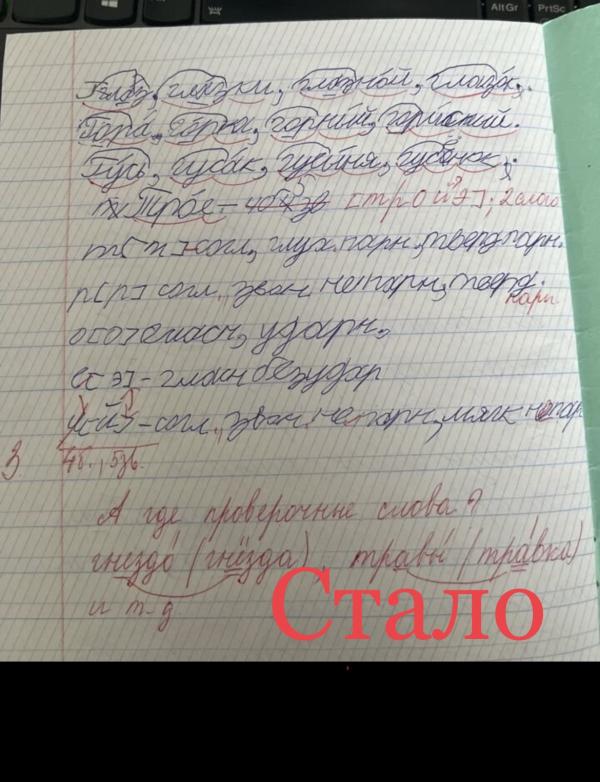 AltGr PrtSc
Глаз, глазки, глазной, глазок.
Гора́, го́рка, горный, гористый.
Гусь, гуса́к, гусыня, гусёнок.
Тро́е – [тройэ]; 2 слога
т [т] согл, глух. парн, тверд парн.
р [р] согл, звон непарн, тверд. парн
о [о] гласн, ударн,
е [э] – гласн безудар
[й] – согл., звон. непарн, мягк непар
3. 4б., 5зв.
А где проверочные слова?
гнездо́ (гнёзда), травы́ (тра́вка)
и т. д
Стало